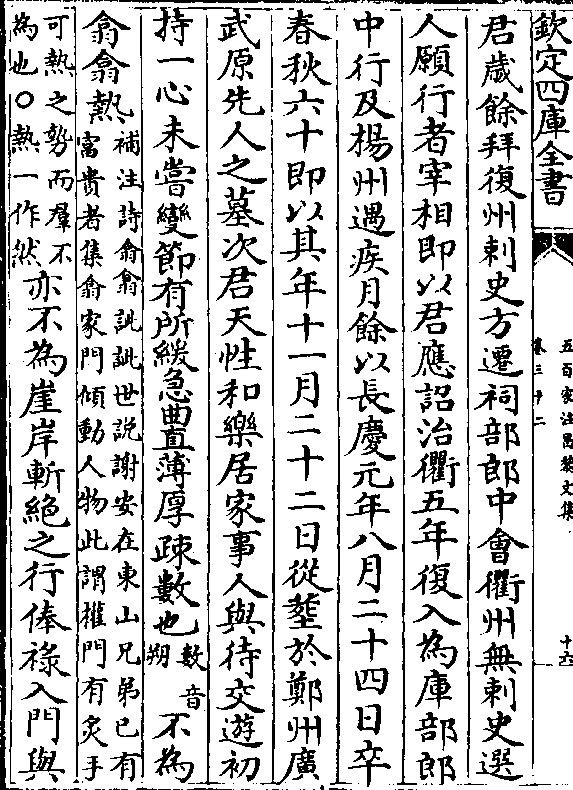 欽定四庫全書
五百家注昌黎文集
卷三十二
十六
君歲餘拜復州刺史方遷祠部郎中會衢州無刺史選
人願行者宰相即以君應詔治衢五年復入為庫部郎
中行及楊州遇疾月餘以長慶元年八月二十四日卒
春秋六十即以其年十一月二十二日從塟於鄭州廣
武原先人之墓次君天性和樂居家事人與待交遊初
持一心未嘗變節有所緩急曲直薄厚疎數也數音朔不為
翕翕熱補注詩翕翕訿訿世說謝安在東山兄弟已有富貴者集翕家門傾動人物此謂權門有炙手
可熱之勢而羣不為也○熱一作然亦不為崖岸斬絕之行俸祿入門與